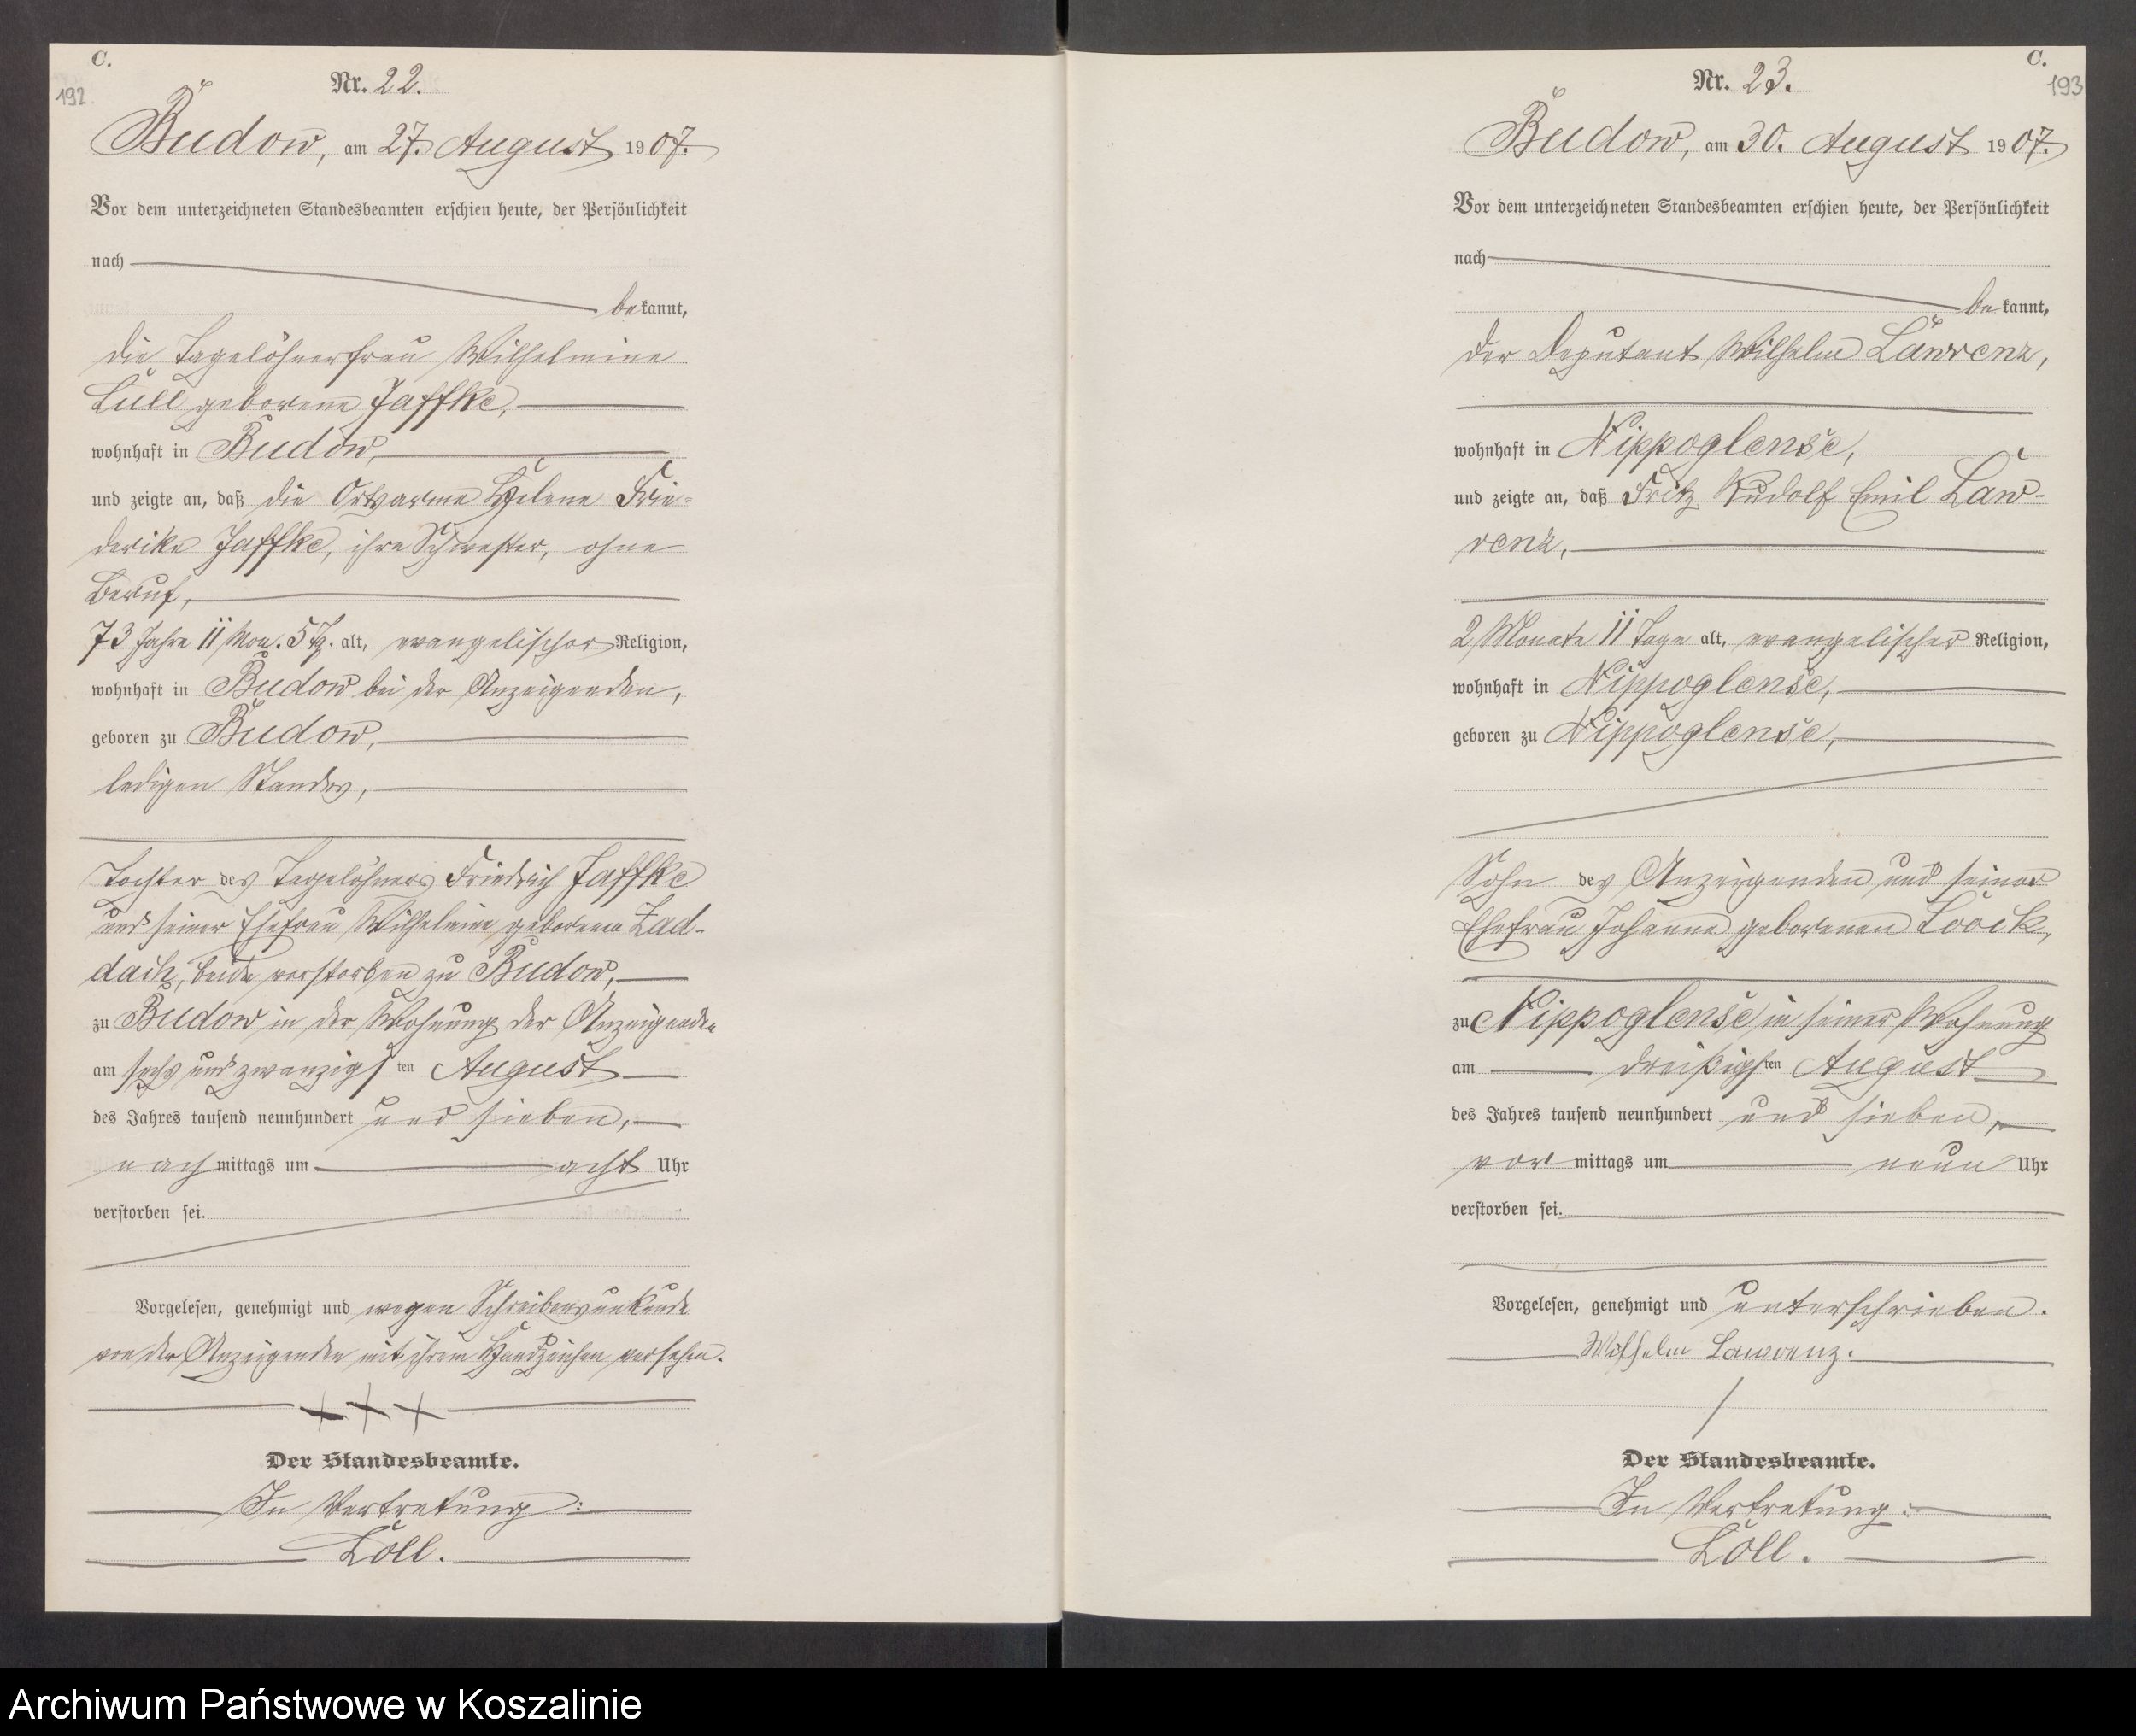 C.
192
Nr. 22.
Budow, am 27. August 1907.
Vor dem unterzeichneten Standesbeamten erschien heute, der Persönlichkeit
nach
bekannt,
die Tagelöhnerfrau Wilhelmine
Lüll geborene Jaffke,
wohnhaft in Budow,
und zeigte an, daß die Ortsarme Helene Frie=
derike Jaffke, ihre Schwester, ohne
Beruf,
73 Jahre 11 Mon. 5 Tg. alt, evangelischer Religion,
wohnhaft in Budow bei der Anzeigenden,
geboren zu Budow,
ledigen Standes,
Tochter des Tagelöhners Friedrich Jaffke
und seiner Ehefrau Wilhelmine geborenen Zad-
dach, beide verstorben zu Budow,
zu Budow in der Wohnung der Anzeigenden
am sechs und zwanzigsten August
des Jahres tausend neunhundert und sieben,
nachmittags um acht Uhr
verstorben sei.
Vorgelesen, genehmigt und wegen Schreibensunkunde
von der Anzeigenden mit ihrem Handzeichen versehen.
+++
Der Standesbeamte.
In Vertretung:
Löll.
C.
193
Nr. 23.
Budow, am 30. August 1907.
Vor dem unterzeichneten Standesbeamten erschien heute, der Persönlichkeit
nach
bekannt,
der Deputant Wilhelm Lawrenz,
wohnhaft in Nippoglense,
und zeigte an, daß Fritz Rudolf Emil Law-
renz,
2 Monate 11 Tage alt, evangelischer Religion,
wohnhaft in Nippoglense,
geboren zu Nippoglense,
Sohn des Anzeigenden und seiner
Ehefrau Johanne geborenen Loock,
zu Nippoglense in seiner Wohnung
am dreißigsten August
des Jahres tausend neunhundert und sieben,
vormittags um neun Uhr
verstorben sei.
Vorgelesen, genehmigt und unterschrieben.
Wilhelm Lawrenz.
Der Standesbeamte.
In Vertretung:
Löll.
Archiwum Państwowe w Koszalinie